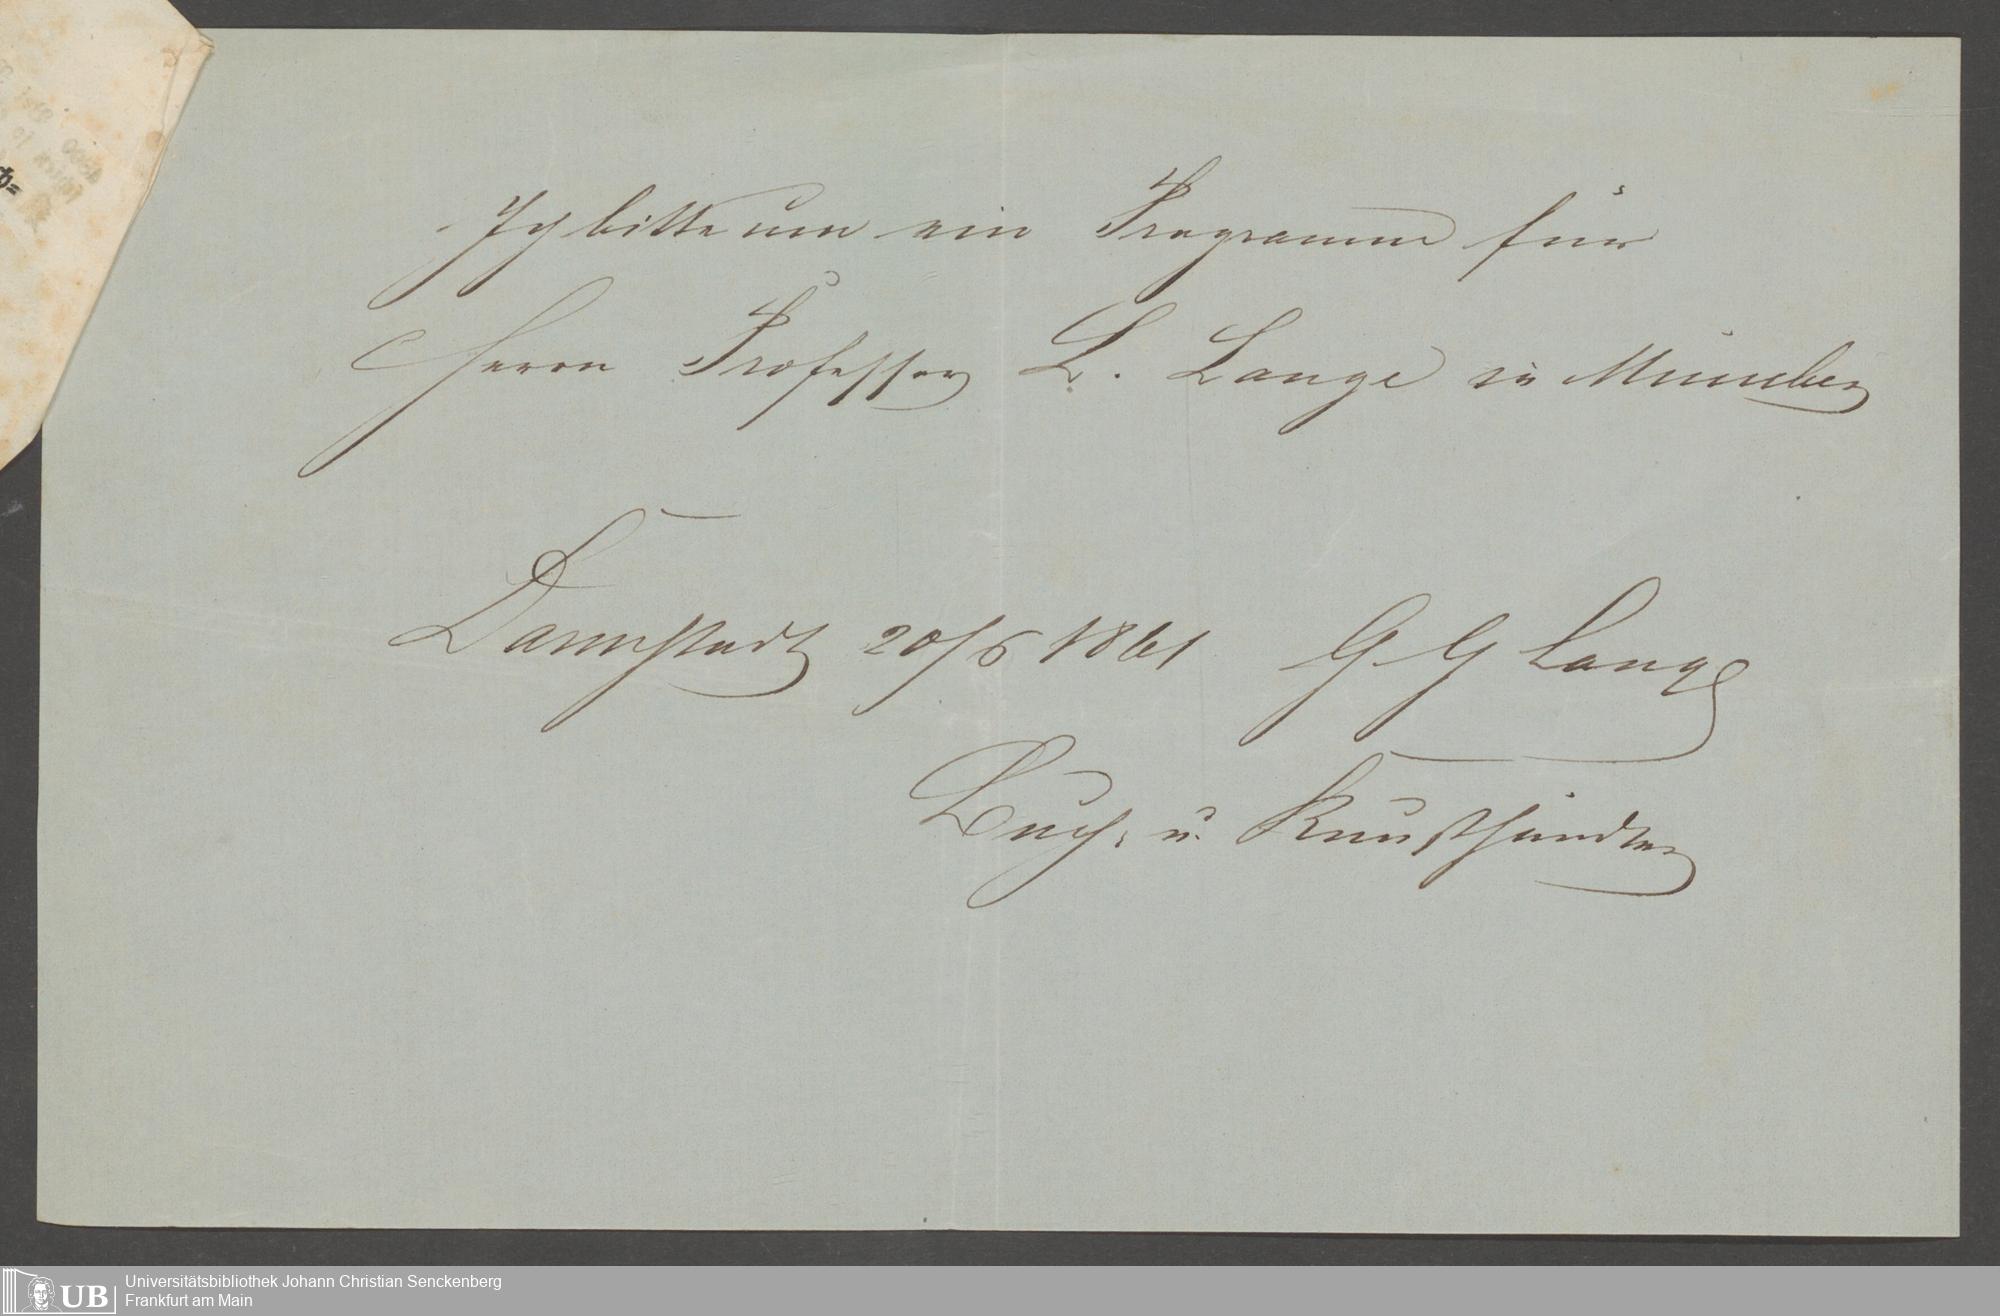 Ich bitte um ein Programm für
Herrn Professor L. Lange in München
Darmstadt 20/6 1861 G G Lange
Buch- u. Kunsthändler
UB Universitätsbibliothek Johann Christian Senckenberg
Frankfurt am Main